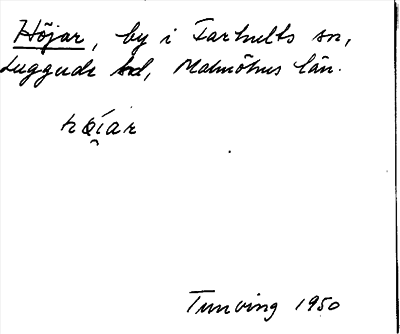 Höjar, by i Farhults sn,
Luggude hd, Malmöhus län.
Tunving 1950